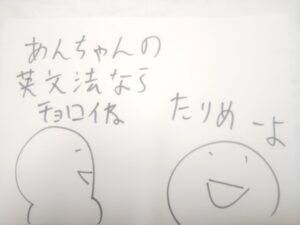 あんちゃんの
英文法なら
チョロイね
たりめーよ